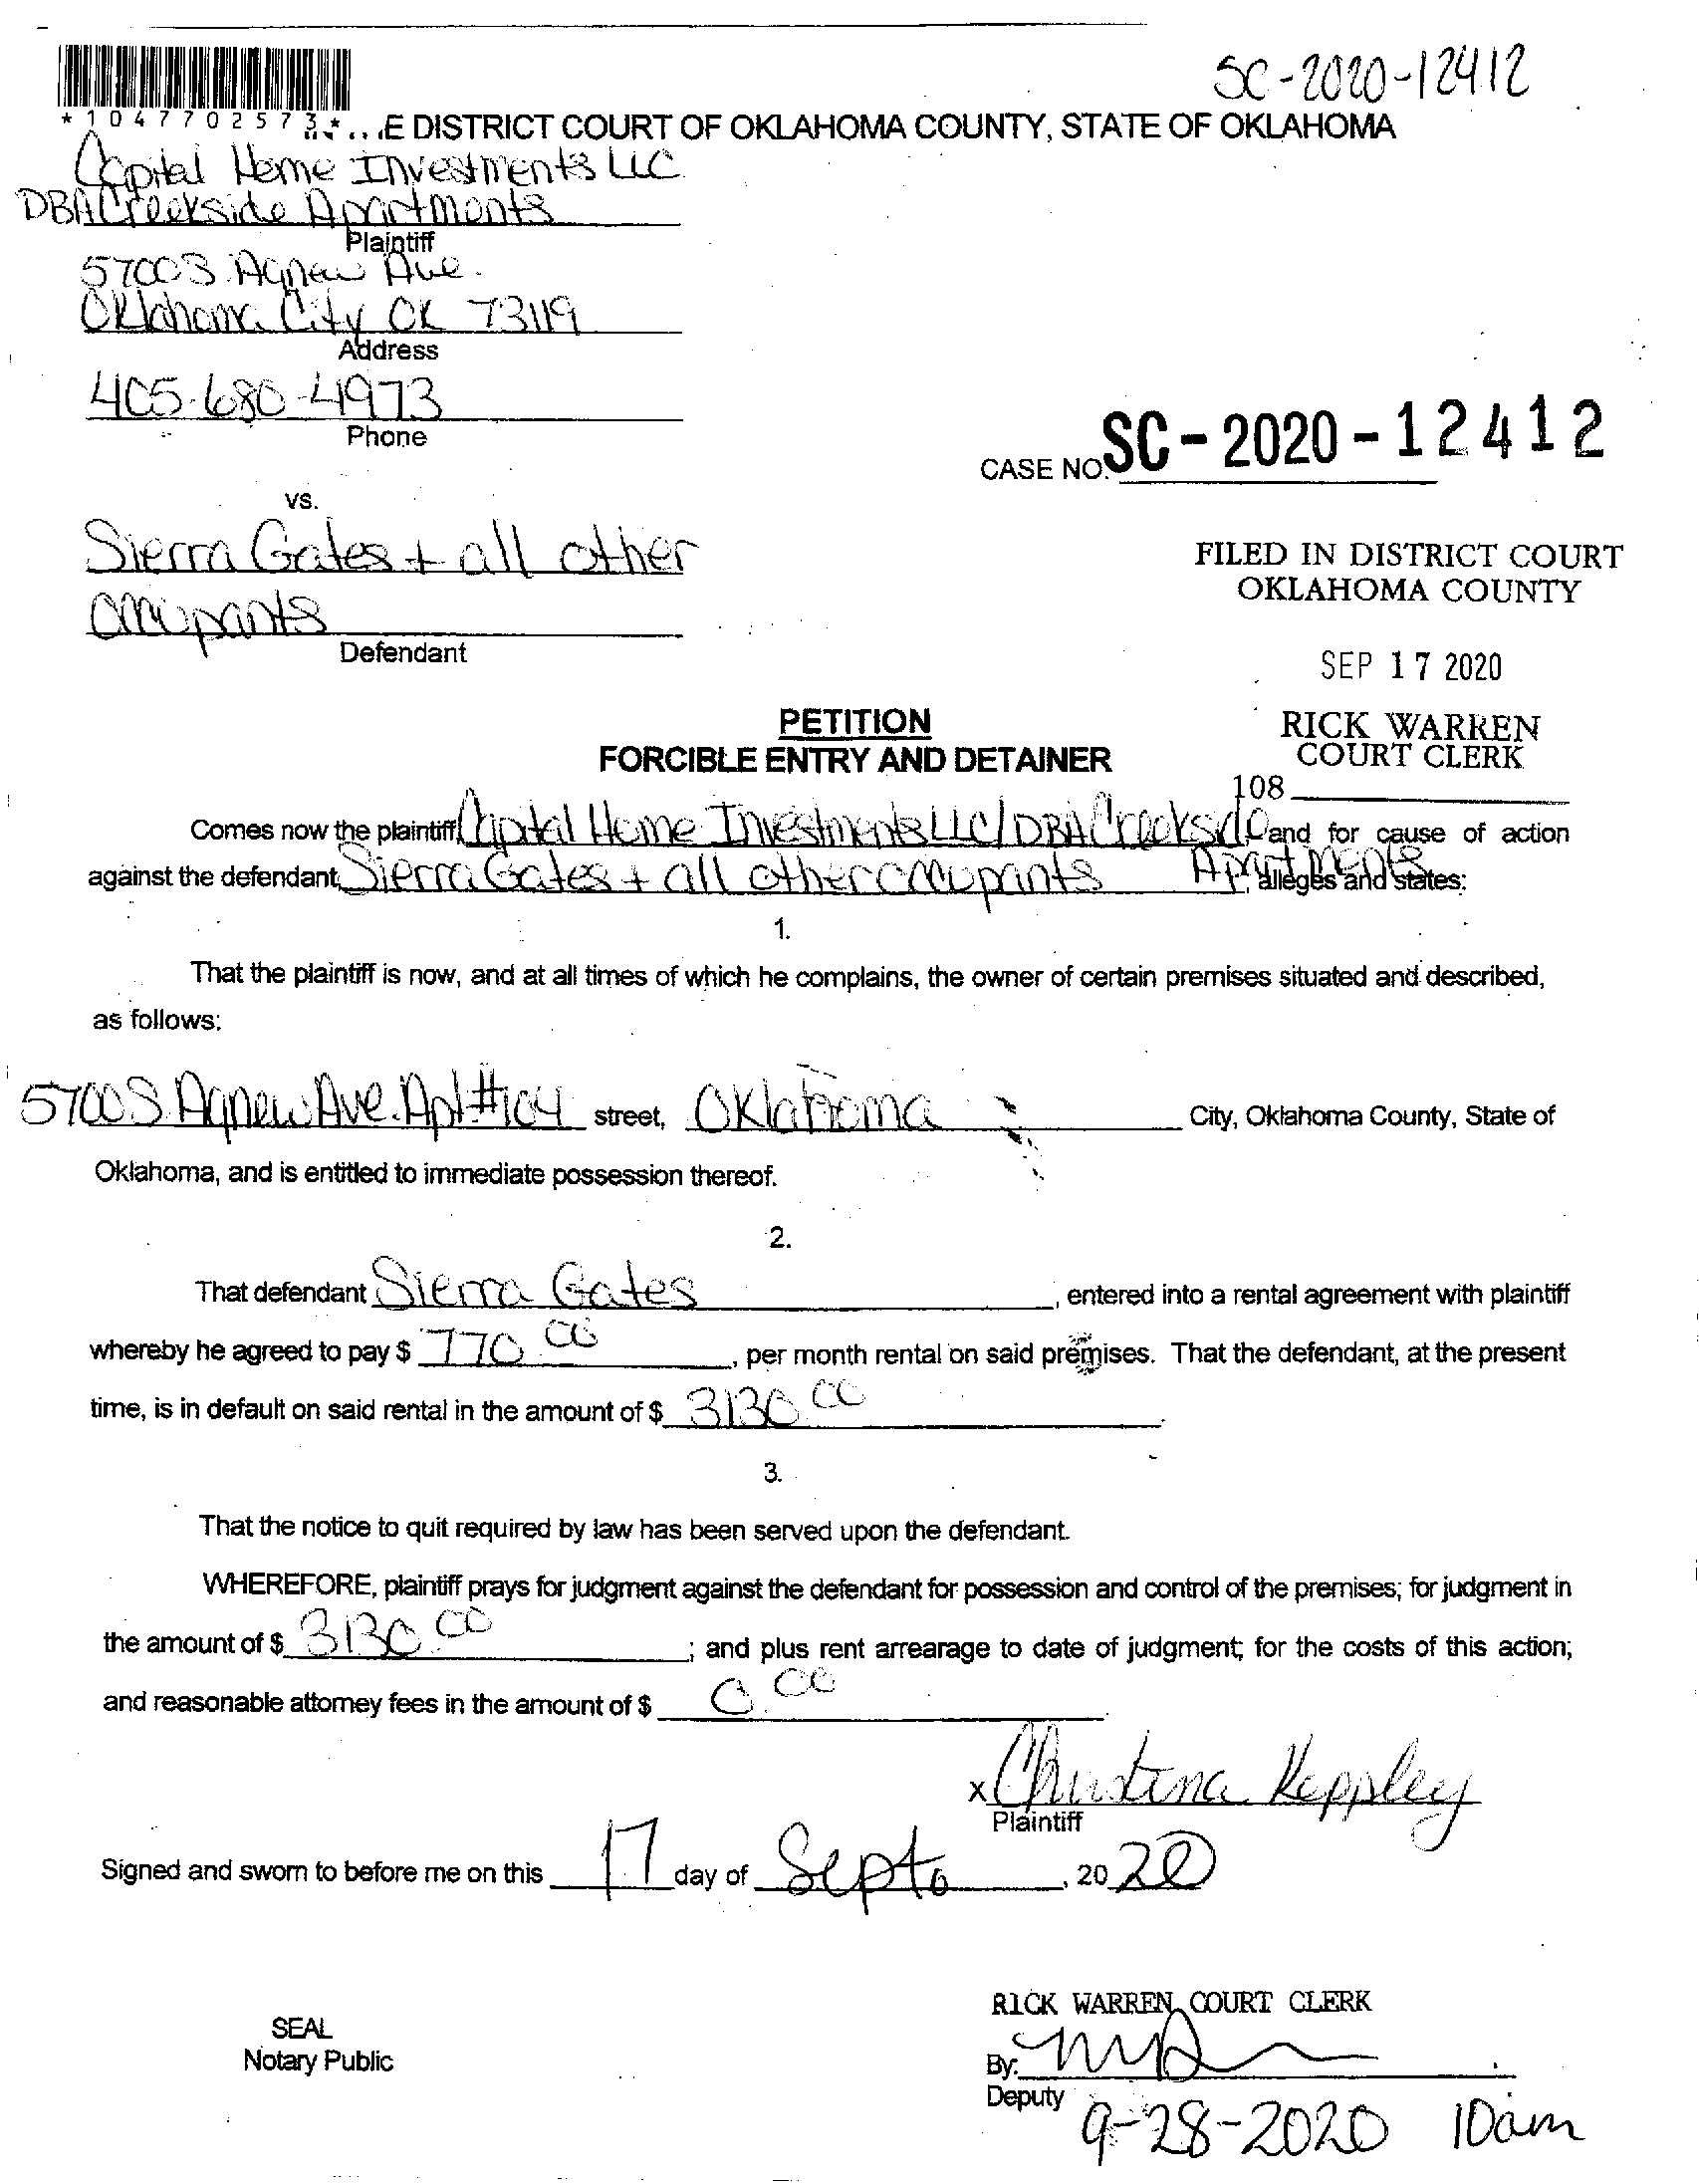 SC-2020-12412
*1047702573*
E DISTRICT COURT OF OKLAHOMA COUNTY, STATE OF OKLAHOMA
Capital Home Investments LLC
DBA Creekside Apartments
Plaintiff
5700 S. Agnew Ave.
Oklahoma City OK 73119
Address
405-680-4973
Phone
CASE NO. SC-2020-12412
vs.
Sierra Gates + all other
occupants
Defendant
FILED IN DISTRICT COURT
OKLAHOMA COUNTY
SEP 17 2020
RICK WARREN
COURT CLERK
108
PETITION
FORCIBLE ENTRY AND DETAINER
Comes now the plaintiff Capital Home Investments LLC/DBA Creekside and for cause of action
Apartments
against the defendant, Sierra Gates + all other occupants, alleges and states:
1.
That the plaintiff is now, and at all times of which he complains, the owner of certain premises situated and described,
as follows:
5700 S. Agnew Ave. Apt #104 street, Oklahoma City, Oklahoma County, State of
Oklahoma, and is entitled to immediate possession thereof.
2.
That defendant Sierra Gates, entered into a rental agreement with plaintiff
whereby he agreed to pay $ 770.00, per month rental on said premises. That the defendant, at the present
time, is in default on said rental in the amount of $ 3130.00.
3.
That the notice to quit required by law has been served upon the defendant.
WHEREFORE, plaintiff prays for judgment against the defendant for possession and control of the premises; for judgment in
the amount of $ 3130.00; and plus rent arrearage to date of judgment; for the costs of this action;
and reasonable attorney fees in the amount of $ 0.00.
x Christina Keppley
Plaintiff
Signed and sworn to before me on this 17 day of Sept, 20 20
RICK WARREN, COURT CLERK
SEAL
Notary Public
By:
Deputy
9-28-2020 10am